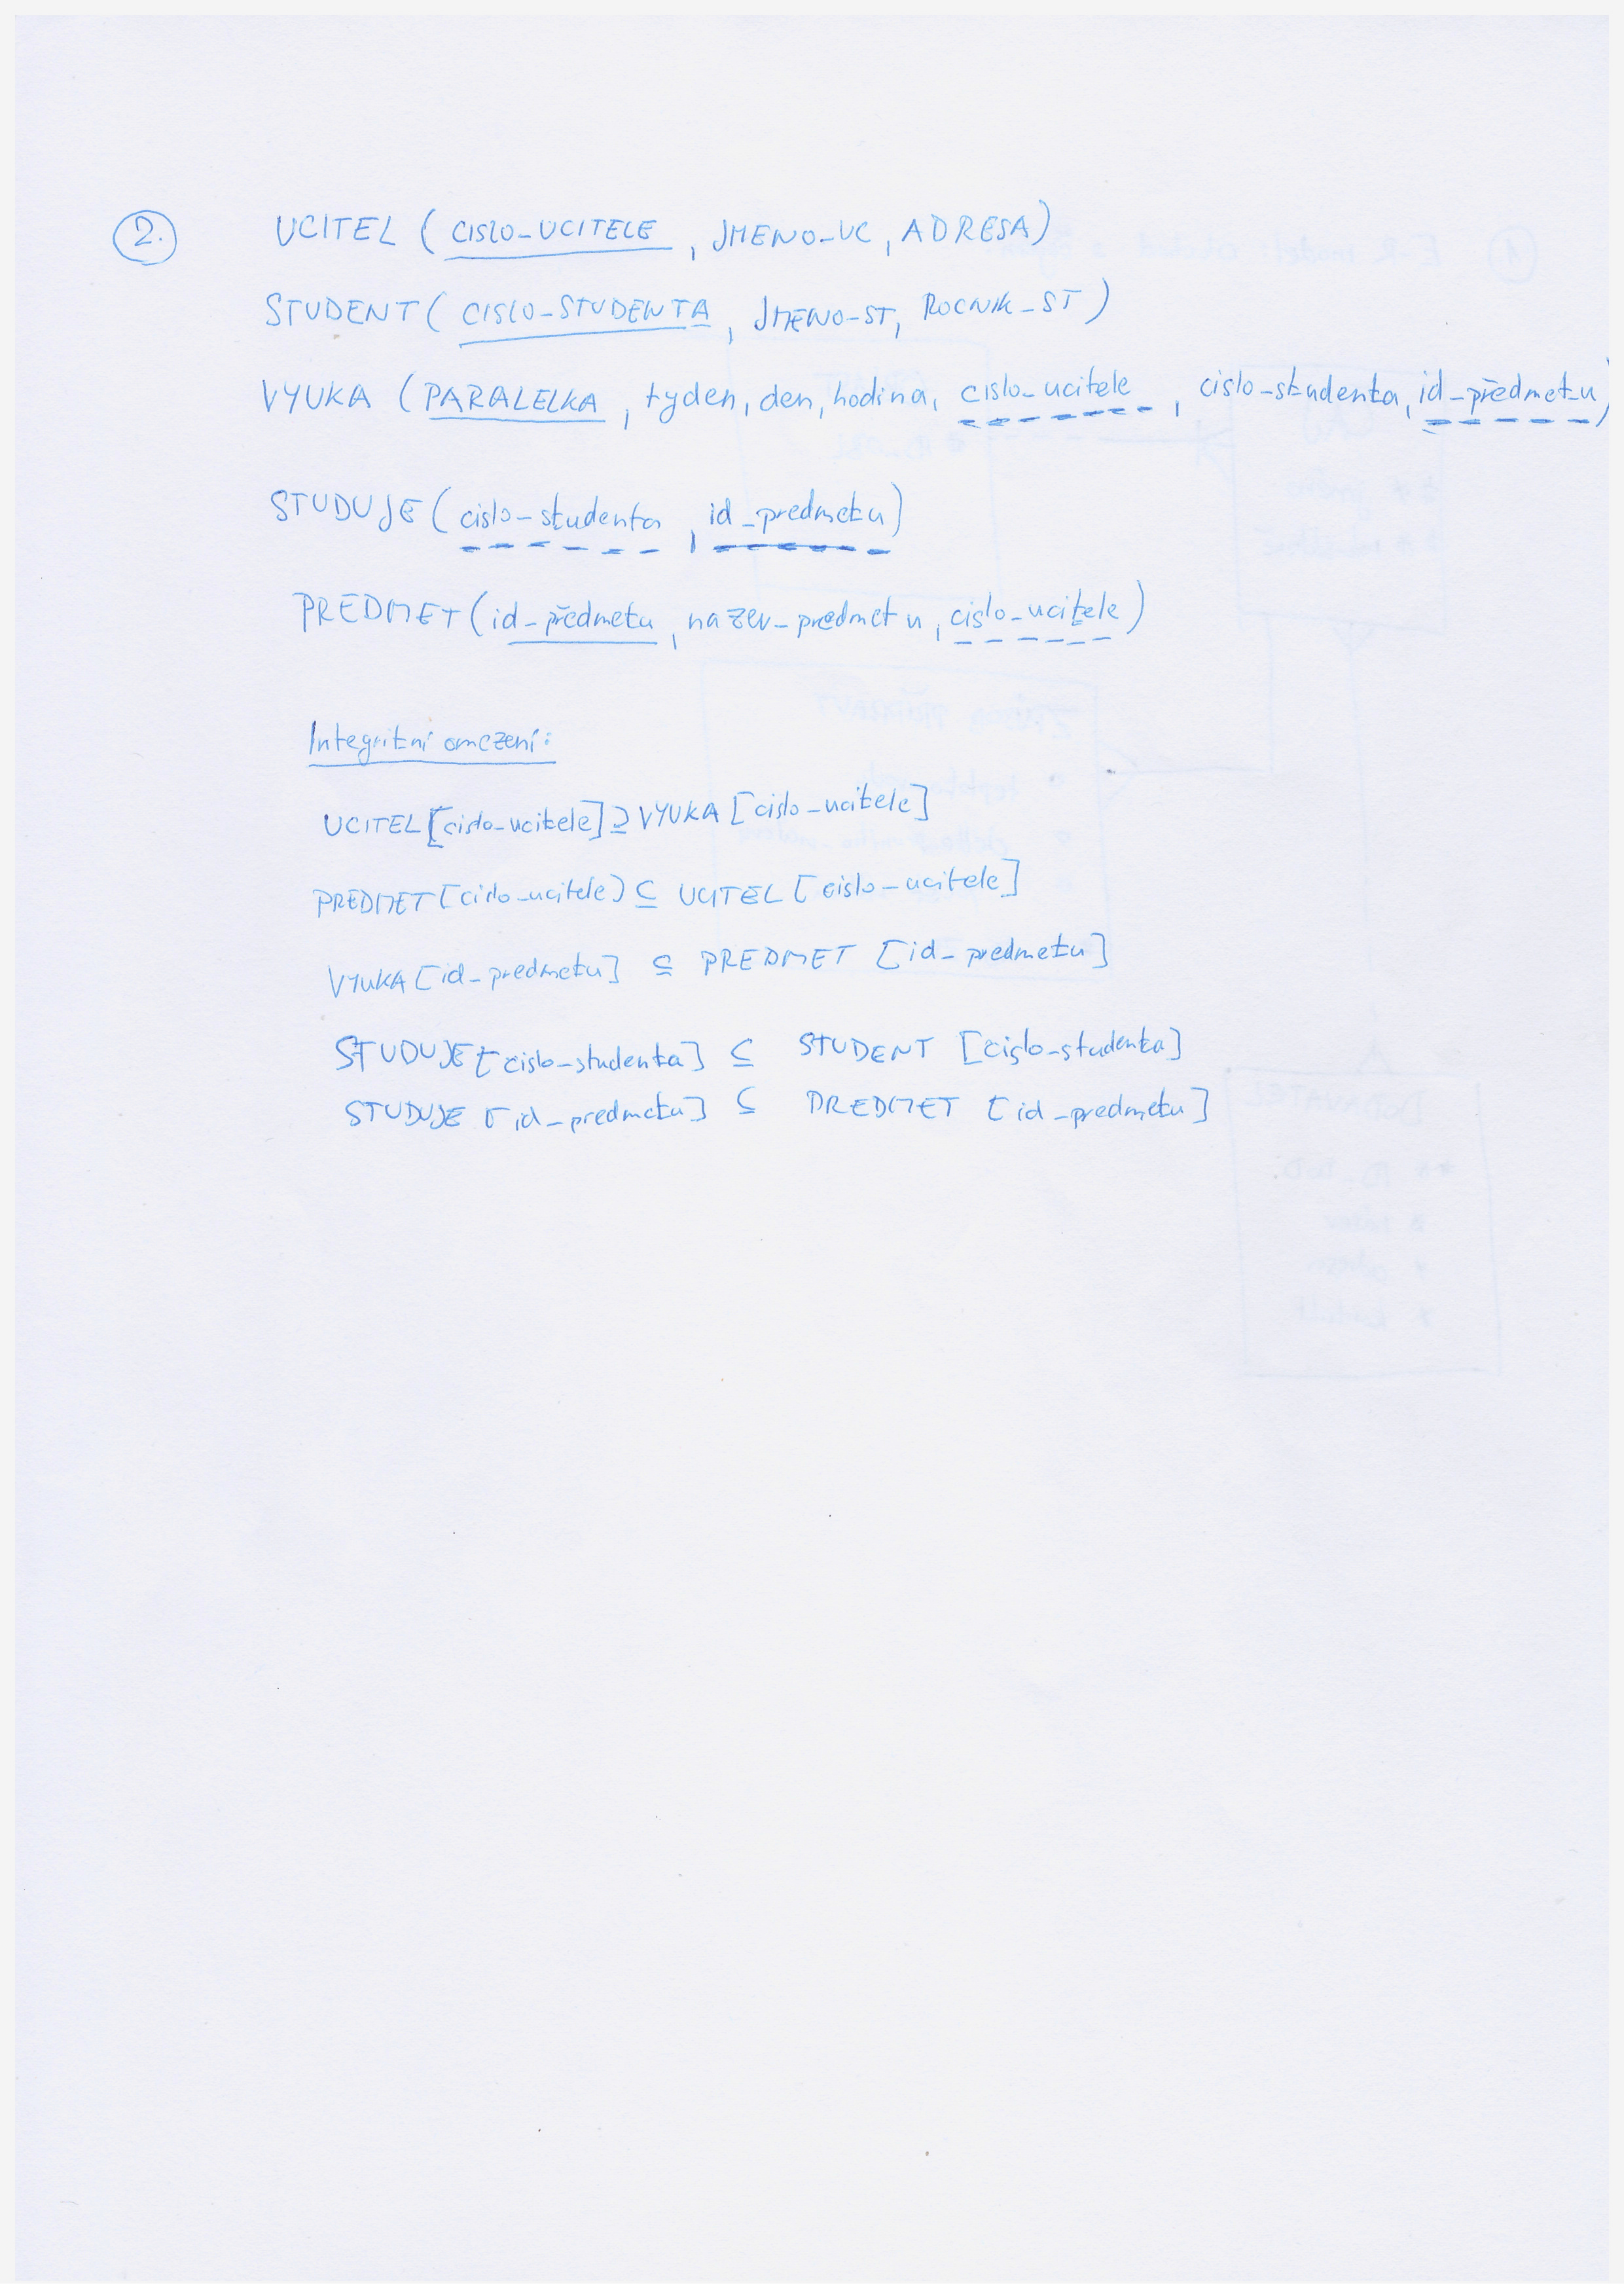 2. UCITEL ( CISLO_UCITELE , JMENO_UC , ADRESA )
STUDENT ( CISLO_STUDENTA , JMENO-ST, ROCNIK_ST )
VYUKA ( PARALELKA , tyden, den, hodina, cislo_ucitele , cislo_studenta, id_předmetu )
STUDUJE ( cislo_studenta , id_predmetu )
PREDMET ( id_předmetu , nazev_predmetu , cislo_ucitele )
Integritní omezení:
UCITEL [cislo_ucitele] ⊇ VYUKA [cislo_ucitele]
PREDMET [cislo_ucitele) ⊆ UCITEL [cislo_ucitele]
VYUKA [id_predmetu] ⊆ PREDMET [id_predmetu]
STUDUJE [cislo_studenta] ⊆ STUDENT [cislo_studenta]
STUDUJE [id_predmetu] ⊆ PREDMET [id_predmetu]